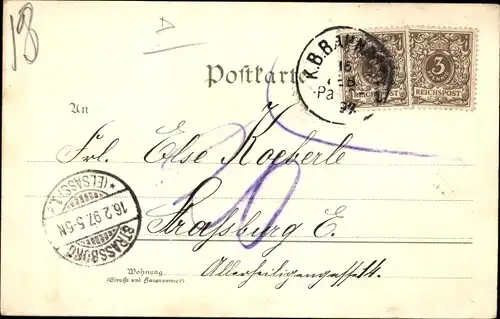 18
A
K.B.BAHNP
16
FEB
Pa
97
3
REICHSPOST
3
REICHSPOST
Postkarte
An
Frl. Else Koeberle
Strassburg E.
Allerheiligengasse
20
STRASSBURG
16.2.97.5-6N
*(ELSASS)1.
Wohnung
(Straße und Hausnummer)